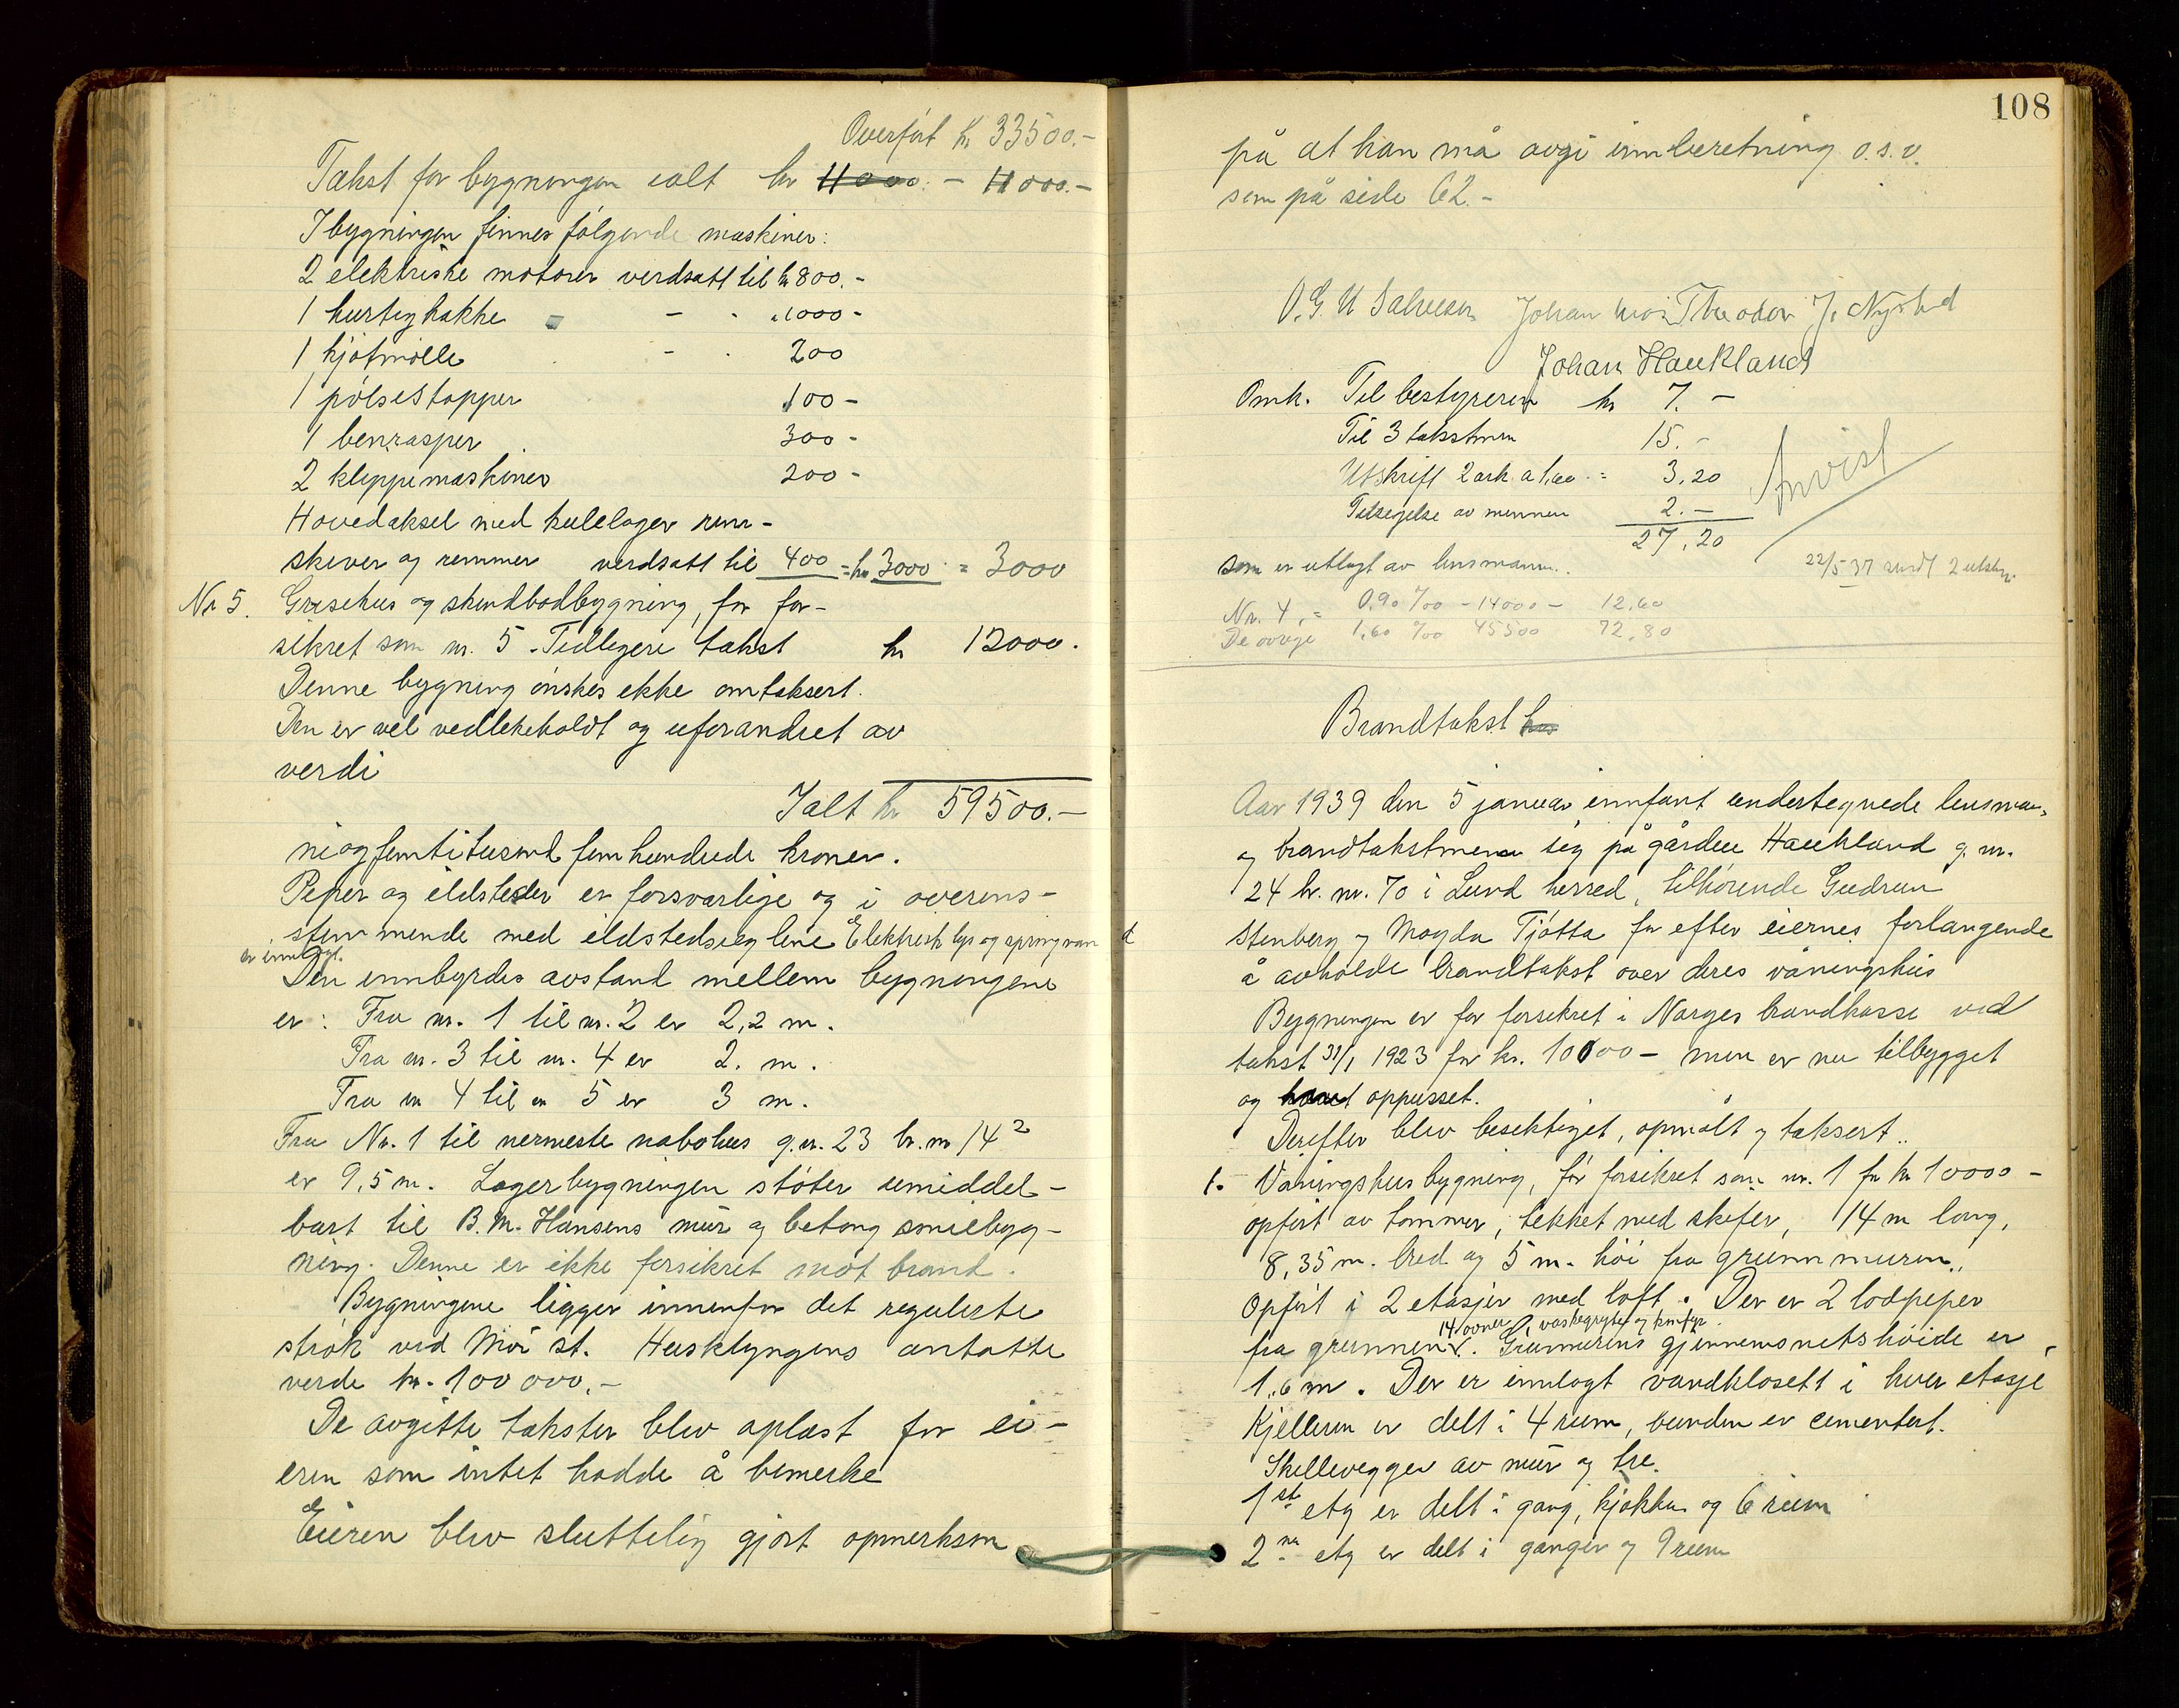 Overført kr 33500.-
Takst for bygningen ialt kr 11000.- 11000.-
I bygningen finnes følgende maskiner:
2 elektriske motorer verdsatt til kr 800.-
1 hurtighakke - " 1000-
1 kjøtmølle - " 200
1 pølsestapper 100-
1 benrasper 300-
2 klippemaskiner 200-
Hovedaksel med kulelager rem-
skiver og remmer verdsatt til 400 = kr 3000 = 3000
Nr 5. Grisehus og skurdbodbygning, før for-
sikret som nr. 5 - Tidligere takst kr 12000.
Denne bygning ønskes ikke omtaksert.
Den er vel vedlikeholdt og uforandret av
verdi
Ialt kr 59500.-
niogfemtitusend femhundrede kroner.
Piper og ildsteder er forsvarlige og i overens-
stemmende med ildstedsreglene Elektrisk lys og springvand
er innlagt.
Den innbyrdes avstand mellem bygningene
er: Fra nr. 1 til nr. 2 er 2,2 m.
Fra nr. 3 til nr. 4 er 2. m.
Fra nr 4 til nr 5 er 3 m.
Fra Nr. 1 til nermeste nabohus g.nr. 23 br.nr 14²
er 9,5 m. Lagerbygningen støter umiddel-
bart til B.M. Hansens mur og betong smiebyg-
ning. Denne er ikke forsikret mot brand.
Bygningene ligger innenfor det regulerte
strøk ved Moi st. Husklyngens antatte
verde kr. 100 000.-
De avgitte takster blev oplest for ei-
eren som intet hadde å bemerke
Eieren blev sluttelig gjort opmerksom
108
på at han må avgi innberetning o.s.v.
som på side 62.-
O.G.U Salvesen Johan Moi Theodor J. Nystøl
Johan Haukland
Omk. Til bestyreren kr 7.-
Til 3 takstmen 15.-
Utskrift 2 ark a 1,60 = 3,20
Tilsigelse av mennene 2.-
27,20
Anvist
som er utlagt av lensmannen.
22/5-37 sendt 2 utskr.
Nr. 4, = 0,90 ‰ - 14000 - 12,60
De øvrige 1,60 ‰ 45500 72,80
Brandtakst hos
Aar 1939 den 5 januar innfant undertegnede lensman
og brandtakstmenn sig på gården Haukland g.nr.
24 br. nr. 70 i Lund herred, tilhørende Gudrun
Stenberg og Magda Tjøtta for efter eiernes forlangende
å avholde brandtakst over deres våningshus
Bygningen er før forsikret i Norges brandkasse ved
takst 31/1 1923 for kr. 10000- men er nu tilbygget
og oppusset.
Derefter blev besiktiget, opmålt og taksert..
1. Våningshusbygning, før forsikret som nr. 1 for kr 10000-
opført av tømmer, tekket med skifer, 14 m lang,
8,35 m. bred og 5 m. høi fra grunnmuren.
Opført i 2 etasjer med loft. Der er 2 lodpiper
14 ovner, 1 vaskegryte og komfyr
fra grunnen. Grunmurens gjennemsnitshøide er
1,6 m. Der er innlagt vandklosett i hver etasje
Kjelleren er delt i 4 rum, bunden er cementert.
Skillevegger av mur og tre.
1ste etg er delt i gang, kjøkken og 6 rum
2ne etg er delt i ganger og 9 rum